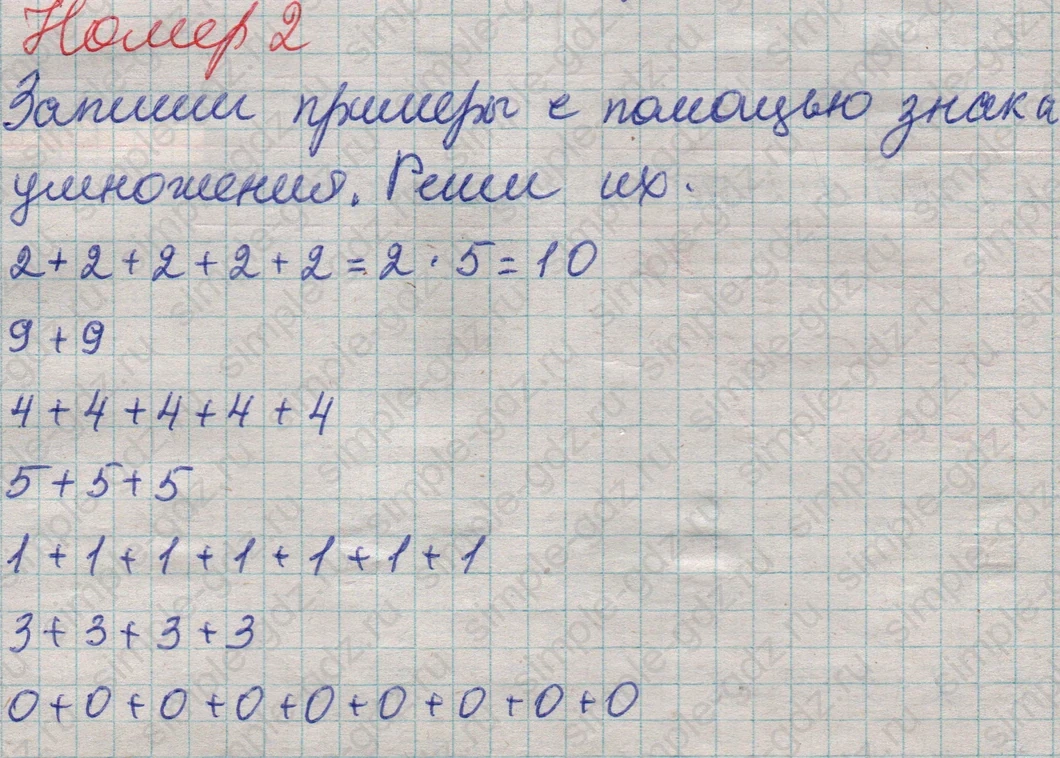 Номер 2
Запиши примеры с помощью знака
умножения. Реши их.
2+2+2+2+2=2·5=10
9+9
4+4+4+4+4
5+5+5
1+1+1+1+1+1+1
3+3+3+3
0+0+0+0+0+0+0+0+0
simple-gdz.ru